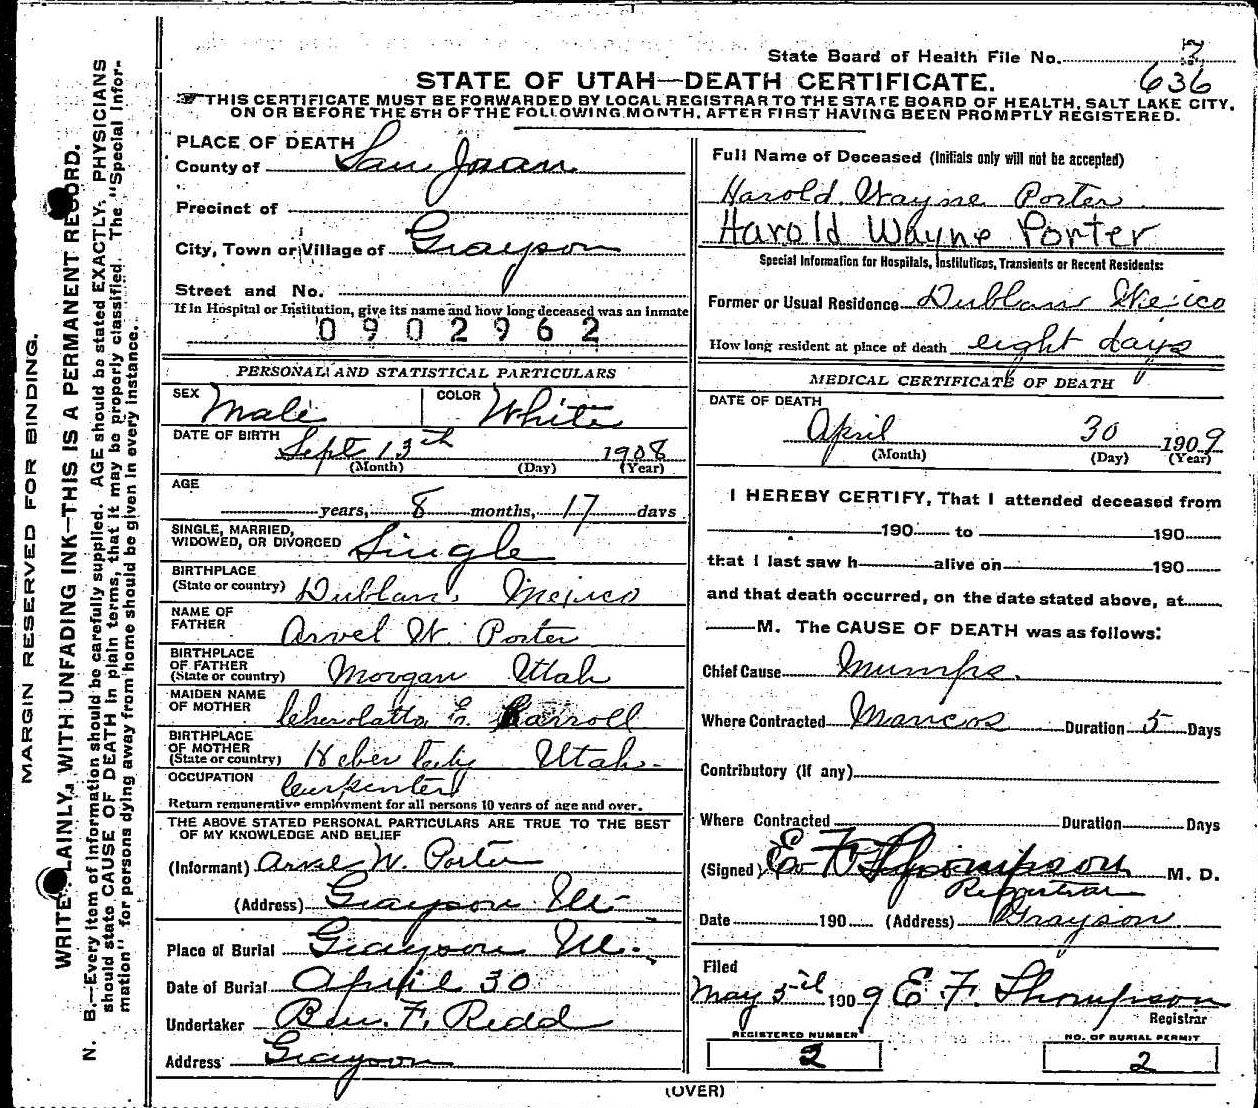 State Board of Health File No. 7
636
STATE OF UTAH—DEATH CERTIFICATE.
THIS CERTIFICATE MUST BE FORWARDED BY LOCAL REGISTRAR TO THE STATE BOARD OF HEALTH, SALT LAKE CITY,
ON OR BEFORE THE 5TH OF THE FOLLOWING MONTH, AFTER FIRST HAVING BEEN PROMPTLY REGISTERED.
MARGIN RESERVED FOR BINDING.
WRITE PLAINLY, WITH UNFADING INK—THIS IS A PERMANENT RECORD.
N. B.—Every item of information should be carefully supplied. AGE should be stated EXACTLY. PHYSICIANS
should state CAUSE OF DEATH in plain terms, that it may be properly classified. The "Special Infor-
mation" for persons dying away from home should be given in every instance.
PLACE OF DEATH
County of San Juan
Precinct of
City, Town or Village of Grayson
Street and No.
If in Hospital or Institution, give its name and how long deceased was an inmate
0902962
PERSONAL AND STATISTICAL PARTICULARS
SEX Male COLOR White
DATE OF BIRTH Sept 13th 1908
(Month) (Day) (Year)
AGE
years, 8 months, 17 days
SINGLE, MARRIED,
WIDOWED, OR DIVORCED Single
BIRTHPLACE
(State or country) Dublan, Mexico
NAME OF
FATHER Arvel W. Porter
BIRTHPLACE
OF FATHER
(State or country) Morgan Utah
MAIDEN NAME
OF MOTHER E. Carroll
BIRTHPLACE
OF MOTHER
(State or country) Heber City Utah
OCCUPATION Carpenter
Return remunerative employment for all persons 10 years of age and over.
THE ABOVE STATED PERSONAL PARTICULARS ARE TRUE TO THE BEST
OF MY KNOWLEDGE AND BELIEF
(Informant) Arvel W. Porter
(Address) Grayson Ut
Place of Burial Grayson Ut.
Date of Burial April 30
Undertaker Ben. F. Redd
Address Grayson
Full Name of Deceased (Initials only will not be accepted)
Harold Wayne Porter
Harold Wayne Porter
Special Information for Hospitals, Institutions, Transients or Recent Residents:
Former or Usual Residence Dublan Mexico
How long resident at place of death eight days
MEDICAL CERTIFICATE OF DEATH
DATE OF DEATH
April 30 1909
(Month) (Day) (Year)
I HEREBY CERTIFY, That I attended deceased from
190 to 190
that I last saw h alive on 190
and that death occurred, on the date stated above, at
M. The CAUSE OF DEATH was as follows:
Chief Cause Mumps.
Where Contracted Mancos Duration 5 Days
Contributory (if any)
Where Contracted Duration Days
(Signed) E F Thompson M. D.
Registrar
Date 190 (Address) Grayson
Filed
May 5th 1909 E F. Thompson
Registrar
REGISTERED NUMBER
2
NO. OF BURIAL PERMIT
2
(OVER)